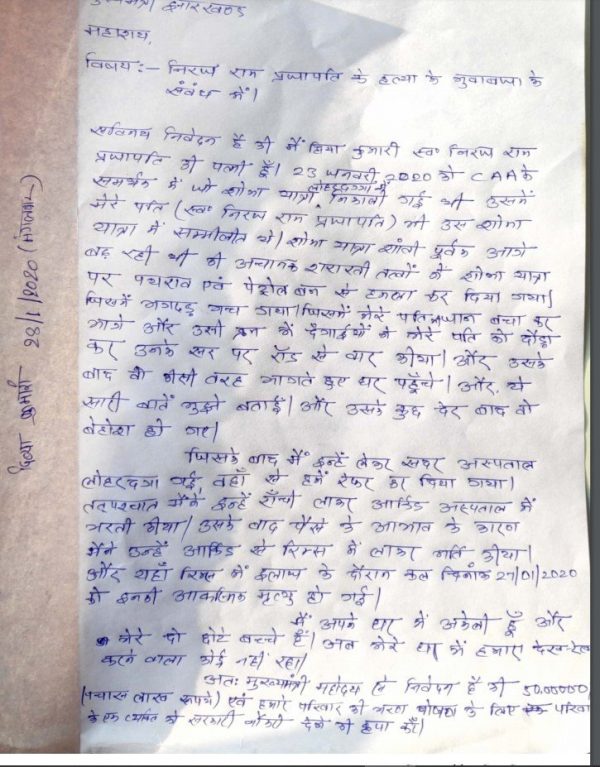 मुख्यमंत्री झारखण्ड
महाशय,
विषय:- निरज राम प्रजापति के हत्या के मुवाबजा के
संबंध में।
सविनय निवेदन है की मैं दिव्या कुमारी स्व० निरज राम
प्रजापति की पत्नी हूँ। 23 जनवरी 2020 को CAA के
समर्थन में जो शोभा यात्रा लोहरदगा में निकाली गई थी उसमें
मेरे पति (स्व० निरज राम प्रजापति) भी उस शोभा
यात्रा में सम्मीलीत थे। शोभा यात्रा शांती पूर्वक आगे
बढ़ रही थी की अचानक शरारती तत्वों ने शोभा यात्रा
पर पथराव एवं पेट्रोल बम से हमला कर दिया गया।
जिसमें भगदड़ मच गया। जिसमें मेरे पति जान बचा कर
भागे और उसी क्रम में दंगाईयों ने मेरे पति को दौड़ा
कर उनके सर पर रॉड से वार कीया। और उसके
बाद वो कीसी तरह भागते हुए घर पहुँचे। और, ये
सारी बातें मुझे बताई। और उसके कुछ देर बाद वो
बेहोश हो गए।
जिसके बाद मैं इन्हें लेकर सदर अस्पताल
लोहरदगा गई वहाँ से हमें रेफर कर दिया गया।
तत्पश्चात मैंने इन्हें राँची लाकर आर्किड अस्पताल में
भरती कीया। उसके बाद पैसे के आभाव के कारण
मैंने उन्हें आर्किड से रिम्स में लाकर भर्ति कीया।
और यहाँ रिम्स में इलाज के दौरान कल दिनांक 27/01/2020
को इनकी आकस्मिक मृत्यु हो गई।
मैं अपने घर में अकेली हूँ और
मेरे दो छोटे बच्चे हैं। अब मेरे घर में हमारा देख-रेख
करने वाला कोई नहीं रहा।
अतः मुख्यमंत्री महोदय से निवेदन है की 50,00000
(पचास लाख रूपये) एवं हमारे परिवार की भरण पोषण के लिए परिवार
के एक व्यक्ति को सरकारी नौकरी देने की कृपा करें।
दिव्या कुमारी 28/1/2020 (मंगलवार)